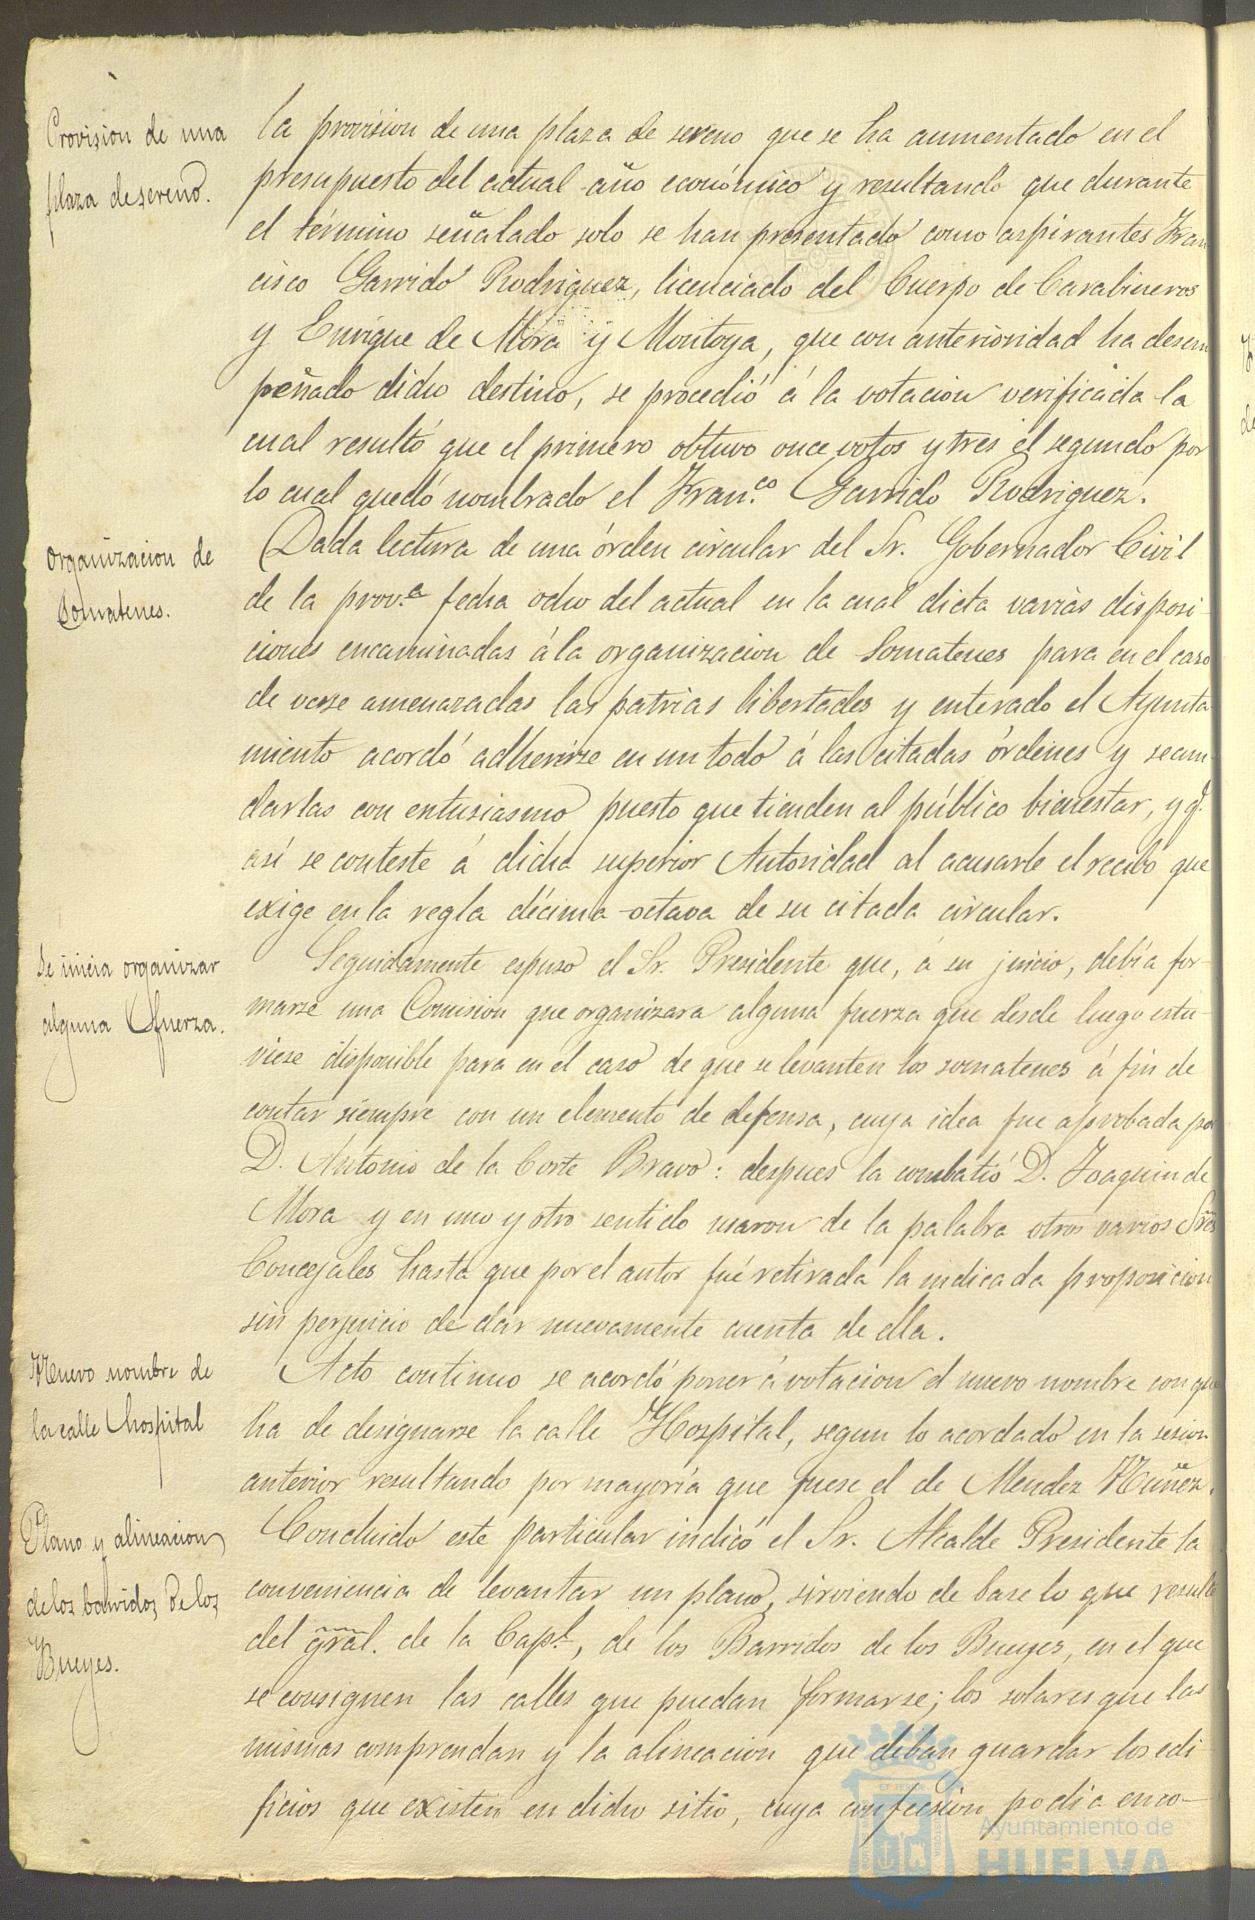 Provision de una
plaza de sereno.
la provision de una plaza de sereno que se ha aumentado en el
presupuesto del actual año económico y resultando que durante
el término señalado solo se han presentado como aspirantes Fran
cisco Garrido Rodriguez, licenciado del Cuerpo de Carabineros
y Enrique de Mora y Montoya, que con anterioridad ha desem
peñado dicho destino, se procedió á la votacion verificada la
cual resultó que el primero obtuvo once votos y tres el segundo por
lo cual quedó nombrado el Fran.co Garrido Rodriguez.
Organizacion de
Somatenes.
Dada lectura de una órden circular del Sr. Gobernador Civil
de la prov.a fecha ocho del actual en la cual dicta varias disposi-
ciones encaminadas á la organizacion de Somatenes para en el caso
de verse amenazadas las patrias libertades y enterado el Ayunta
miento acordó adherirse en un todo á las citadas órdenes y secun
darlas con entusiasmo puesto que tienden al público bienestar, y q.
así se conteste á dicha superior Autoridad al acusarle el recibo que
exige en la regla décima-octava de su citada circular.
Se inicia organizar
alguna fuerza.
Seguidamente espuso el Sr. Presidente que, á su juicio, debía for-
marse una Comision que organizara alguna fuerza que desde luego estu-
viese disponible para en el caso de que se levanten los somatenes á fin de
contar siempre con un elemento de defensa, cuya idea fue aprobada por
D. Antonio de la Corte Bravo: despues la combatió D. Joaquin de
Mora y en uno y otro sentido usaron de la palabra otros varios Sres
Concejales hasta que por el autor fué retirada la indicada proposicion
sin perjuicio de dar nuevamente cuenta de ella.
Nuevo nombre de
la calle hospital
Acto continuo se acordó poner á votacion el nuevo nombre con que
ha de designarse la calle Hospital, segun lo acordado en la sesion
anterior resultando por mayoría que fuese el de Mendez Nuñez.
Plano y alineacion
de los barridos de los
Bueyes.
Concluido este particular indicó el Sr. Alcalde Presidente la
conveniencia de levantar un plano, sirviendo de base lo que resulte
del gral. de la Capl, de los Barridos de los Bueyes, en el que
se consignen las calles que puedan formarse; los solares que las
mismas comprendan y la alineacion que deban guardar los edi
ficios que existen en dicho sitio, cuya confeccion podia enco-
Ayuntamiento de
HUELVA